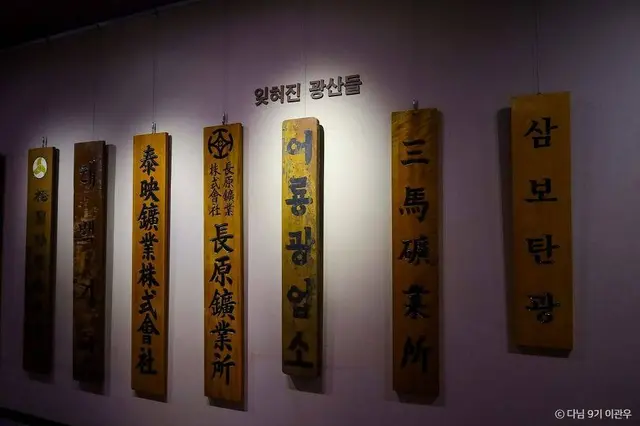 잊혀진 광산들
泰映鑛業株式會社
長原鑛業
株式會社
長原鑛業所
어룡광업소
三馬礦業所
삼보탄광
© 다님 9기 이관우